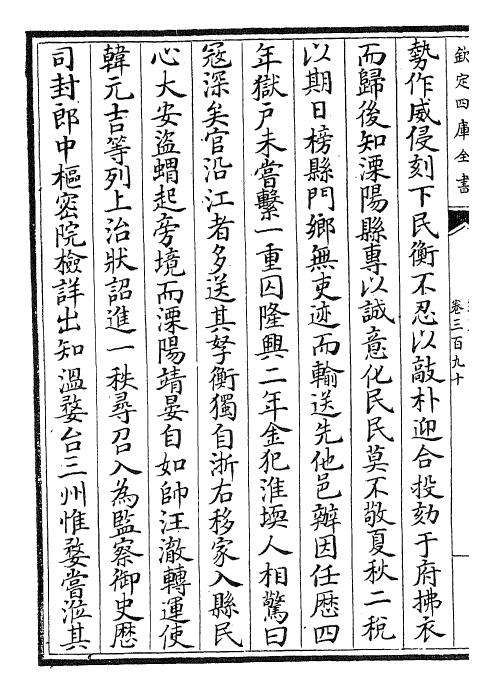 欽定四庫全書
卷三百九十
勢作威侵刻下民衡不忍以敲朴迎合投劾于府拂衣
而歸後知溧陽縣專以誠意化民民莫不敬夏秋二稅
以期日榜縣門鄉無吏迹而輸送先他邑辦因任歴四
年獄戸未嘗繫一重囚隆興二年金犯淮壖人相驚曰
寇深矣官沿江者多送其孥衡獨自浙右移家入縣民
心大安盜蝟起旁境而溧陽靖晏自如帥汪澈轉運使
韓元吉等列上治狀詔進一秩尋召入為監察御史歴
司封郎中樞密院檢詳出知溫婺台三州惟婺嘗涖其